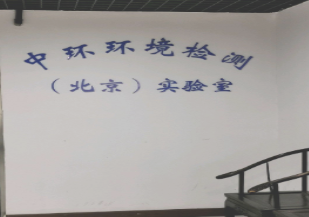 中环环境检测
（北京）实验室